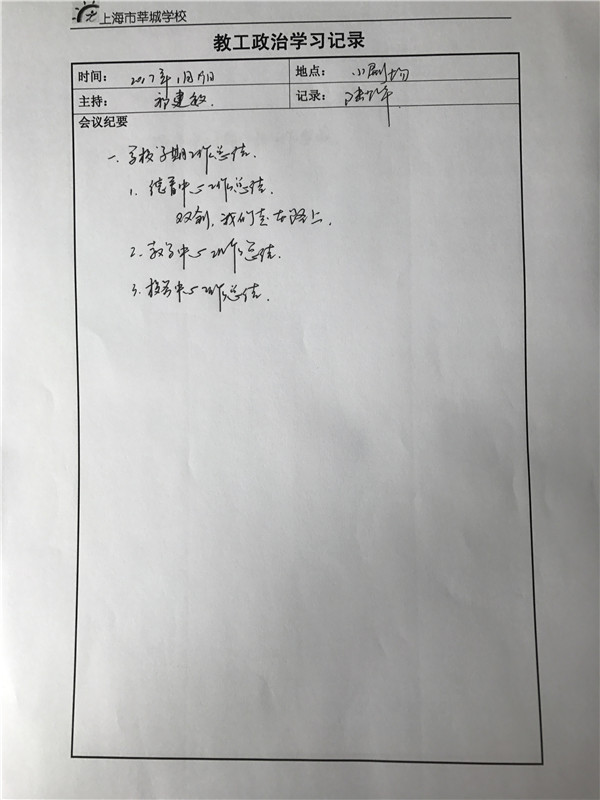 上海市莘城学校
教工政治学习记录
时间: 2017年1月 日 地点: 小剧场
主持: 祁建敏 记录: 陆萍
会议纪要
一、学校学期工作总结.
1. 德育中心工作总结.
双创,我们走在路上.
2. 教学中心工作总结.
3. 校务中心工作总结.